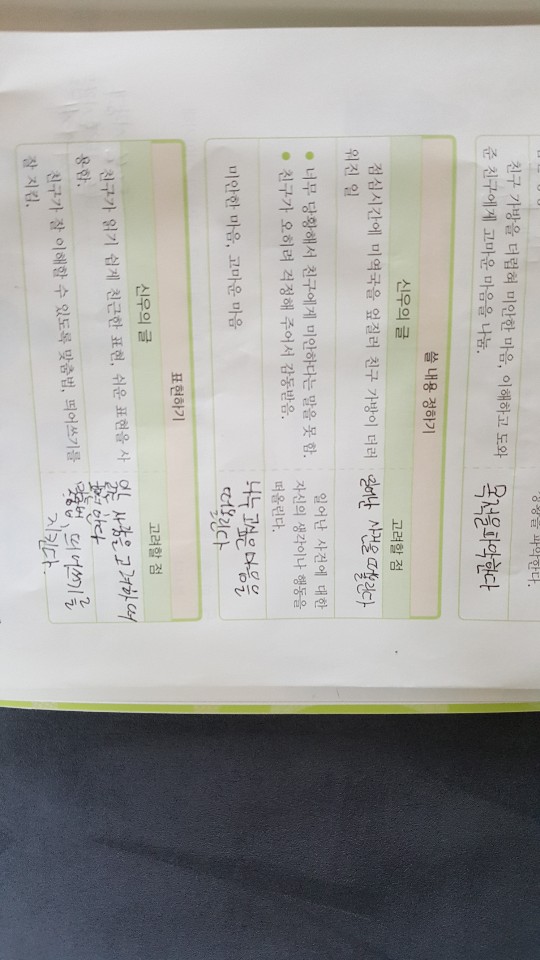 친구 가방을 더럽혀 미안한 마음, 이해하고 도와
준 친구에게 고마운 마음을 나눔.
파악한다.
목적을 파악한다
쓸 내용 정하기
신우의 글
고려할 점
점심시간에 미역국을 엎질러 친구 가방이 더러
워진 일
일어난 사건을 떠올린다
너무 당황해서 친구에게 미안하다는 말을 못 함.
친구가 오히려 걱정해 주어서 감동받음.
일어난 사건에 대한
자신의 생각이나 행동을
떠올린다.
미안한 마음, 고마운 마음
나누고 싶은 마음을
떠올린다
표현하기
신우의 글
고려할 점
친구가 읽기 쉽게 친근한 표현, 쉬운 표현을 사
용함.
읽는 사람을 고려하며
쓴다
친구가 잘 이해할 수 있도록 맞춤법, 띄어쓰기를
잘 지킴.
맞춤법, 띄어쓰기를
지킨다.